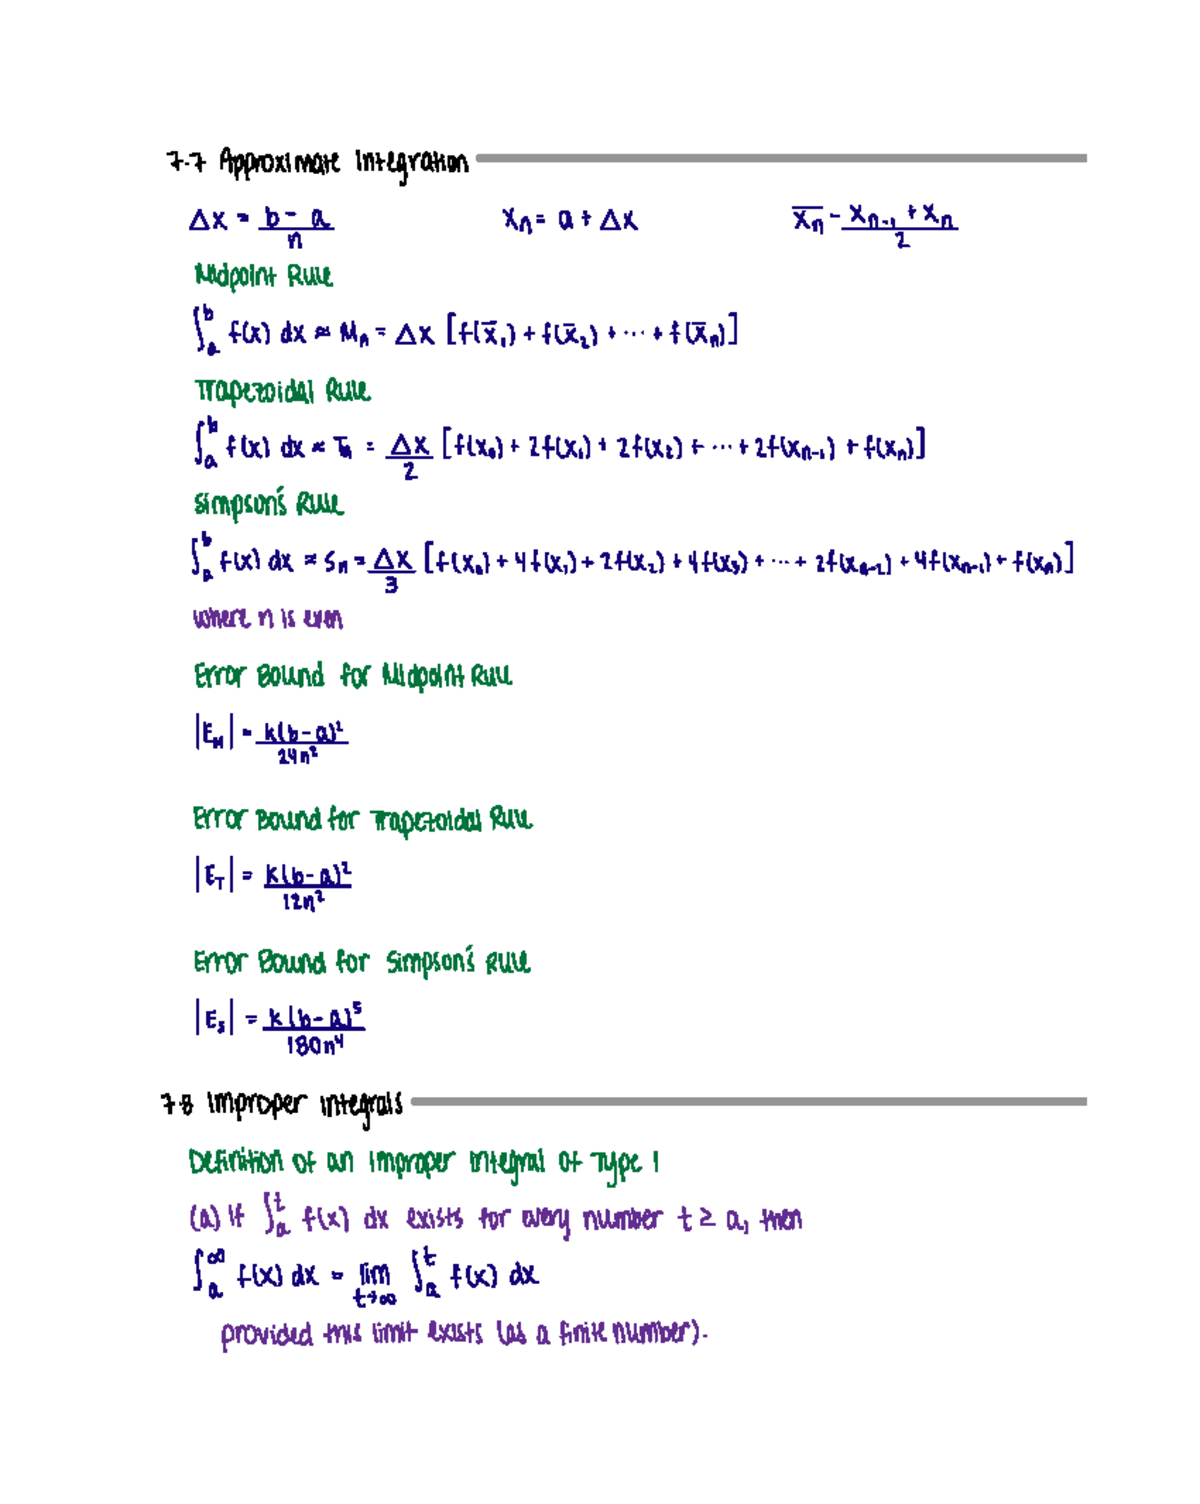 7.7 Approximate Integration
Δx = b - a / n    xₙ = a + Δx    x̄ₙ = xₙ₋₁ + xₙ / 2
Midpoint Rule
∫ₐᵇ f(x) dx ≈ Mₙ = Δx [f(x̄₁) + f(x̄₂) + ... + f(x̄ₙ)]
Trapezoidal Rule
∫ₐᵇ f(x) dx ≈ Tₙ = Δx/2 [f(x₀) + 2f(x₁) + 2f(x₂) + ... + 2f(xₙ₋₁) + f(xₙ)]
Simpson's Rule
∫ₐᵇ f(x) dx ≈ Sₙ = Δx/3 [f(x₀) + 4f(x₁) + 2f(x₂) + 4f(x₃) + ... + 2f(xₙ₋₂) + 4f(xₙ₋₁) + f(xₙ)]
where n is even
Error Bound for Midpoint Rule
|E_M| = k(b-a)² / 24n²
Error Bound for Trapezoidal Rule
|E_T| = k(b-a)² / 12n²
Error Bound for Simpson's Rule
|E_S| = k(b-a)⁵ / 180n⁴
7.8 Improper Integrals
Definition of an Improper Integral of Type 1
(a) If ∫ₐᵗ f(x) dx exists for every number t ≥ a, then
∫ₐ^∞ f(x) dx = lim t→∞ ∫ₐᵗ f(x) dx
provided this limit exists (as a finite number).